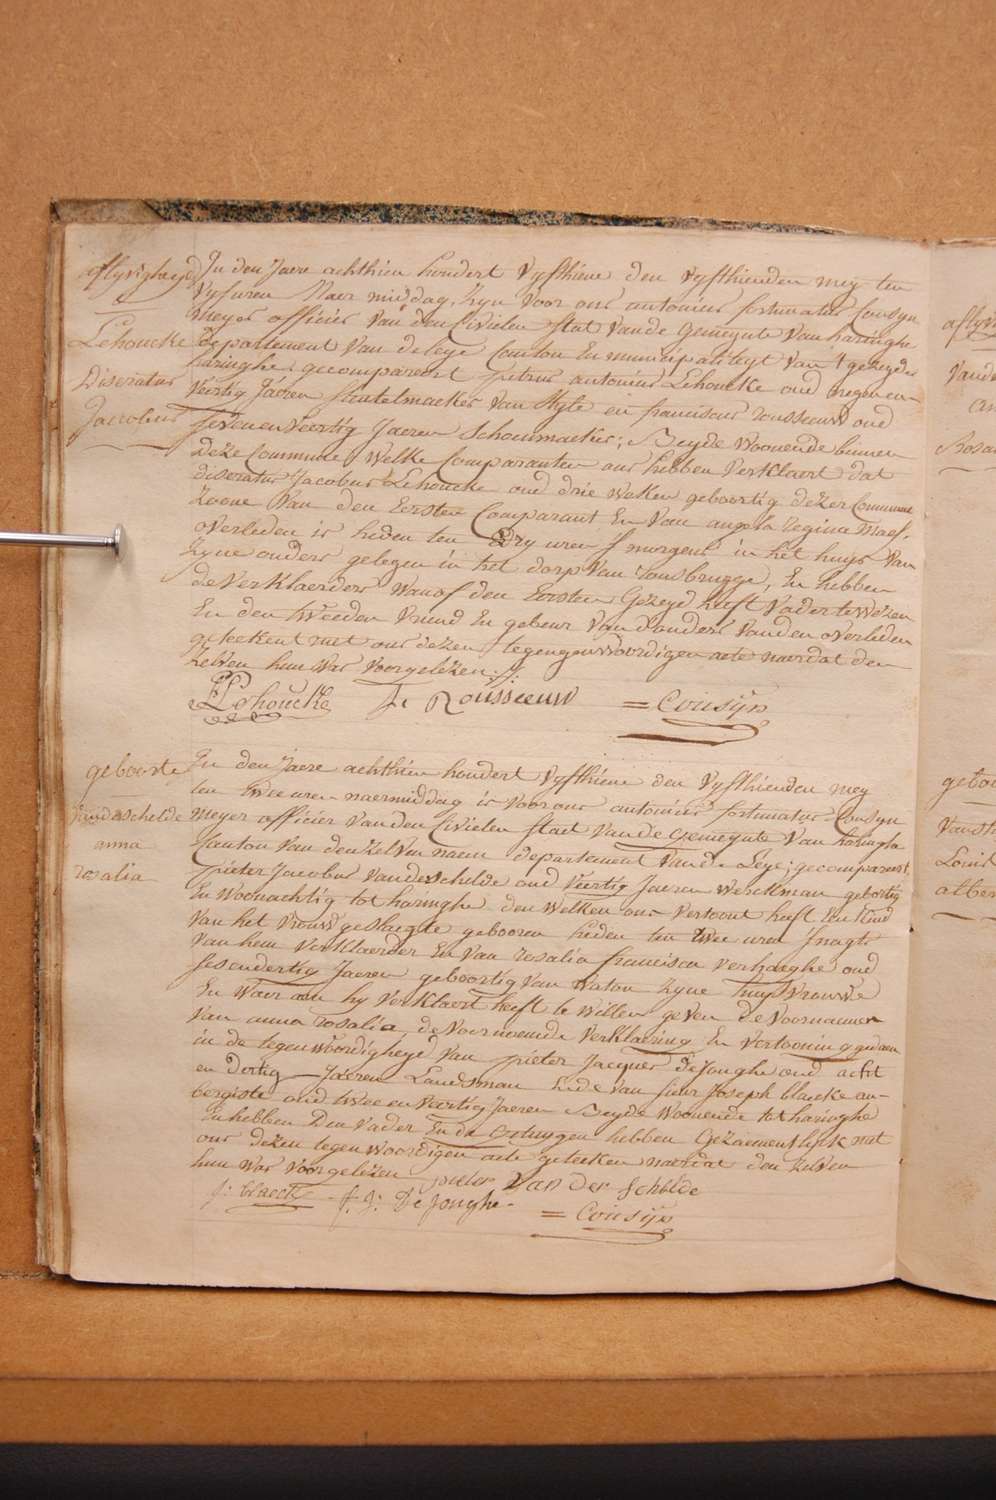 aflyvigheyd
Lehoucke
Diseratus
Jacobus
In den Jaere achthien hondert vyfthiene den vyfthienden mey ten
vyf uren Naer middag, Zyn voor ons antonius fortunatus Cousyn
Meyer officier van den Civielen stat van de gemeynte van haringhe
departement van de leye Canton En municipaliteyt van 't gezeyde
haringhe, gecompareert petrus antonius Lehoucke oud negen en
veertig Jaeren stoelmaeker van styte en franciscus rousseeuw oud
seven en veertig Jaeren Schoenmaeker; Beyde Woonende binnen
deze Commune, Welke Comparanten ons hebben verklaert dat
diseratus Jacobus Lehoucke oud drie Weken geboortig dezer Commune
zoone Van den Eersten Comparant En Van angela regina Maes,
overleden is heden ten dry uren s'morgens in het huys van
zyne ouders gelegen in het dorp van rousbrugge, En hebben
de verklaerders Wanof den Eersten Gezeyd heeft Vader te Wezen
En den tweeden vriend En gebeur van d'ouders van den overleden
geteekent met ons dezen tegengenwoordigen acte naer dat den
Zelven hun Was voorgelezen ./.
PLehoucke f: Rousseeuw = Cousÿn
geboorte
Vanderschelde
anna
rosalia
In den Jaere achthien hondert vyfthiene den vyfthienden mey
ten twee uren naermiddag is voor ons antonius fortunatus Cousyn
Meyer officier van den Civielen staet van de gemeynte van haringhe
Canton van den zelven naem departement van de Leye; gecompareert
pieter Jacobus Vanderschelde oud veertig Jaeren Werckman geboortig
En Woonachtig tot haringhe den Welken ons vertoont heeft Een kind
van het vrouwe geslaegte gebooren heden ten twee uren s'nagts
van hem verklaerder En van rosalia francisca verhaeghe oud
sesendertig Jaeren geboortig van Waton zyne huysvrouwe
En Waer aen hy verklaert heeft te willen geven de voornaemen
van anna rosalia, de voornoemde verklaering En vertooning gedaen
in de tegenwoordigheyd van pieter Jacques DeJonghe oud acht
en dertig Jaeren Landsman hide van sieur Joseph blaecke au-
bergiste oud twee en veertig Jaeren Beyde Woonende tot haringhe
En hebben Den vader En de getuygen hebben Gezaementlyk met
ons dezen tegenwoordigen acte geteeken naerdat den zelven
hun Was voorgelezen pieter van der schelde
J: blaecke f: J: DeJonghe.
= Cousÿn
aflyv
Vande
an
Rosa
geboo
Louis
alber